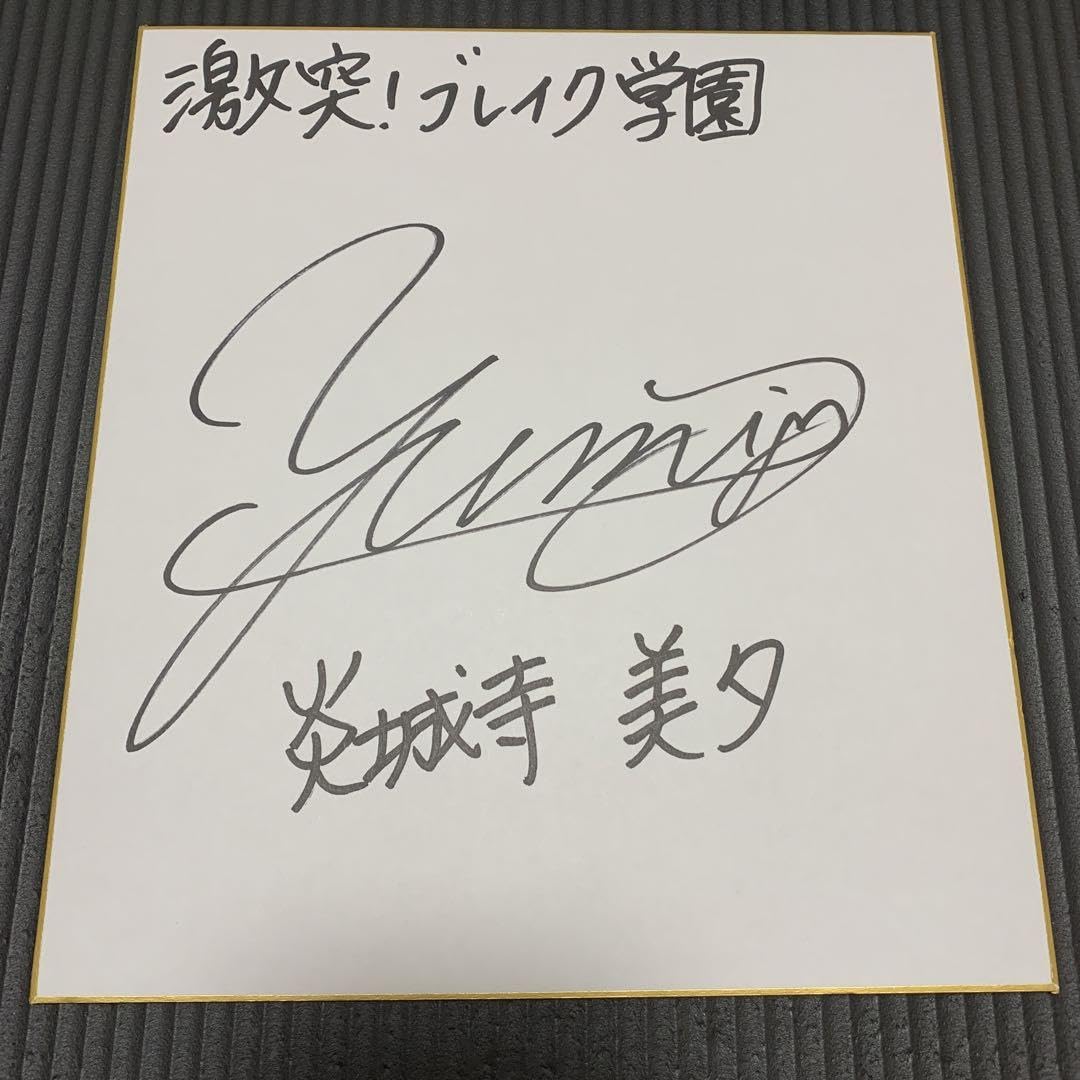 激突!ブレイク学園
Yumi
炎城寺 美夕